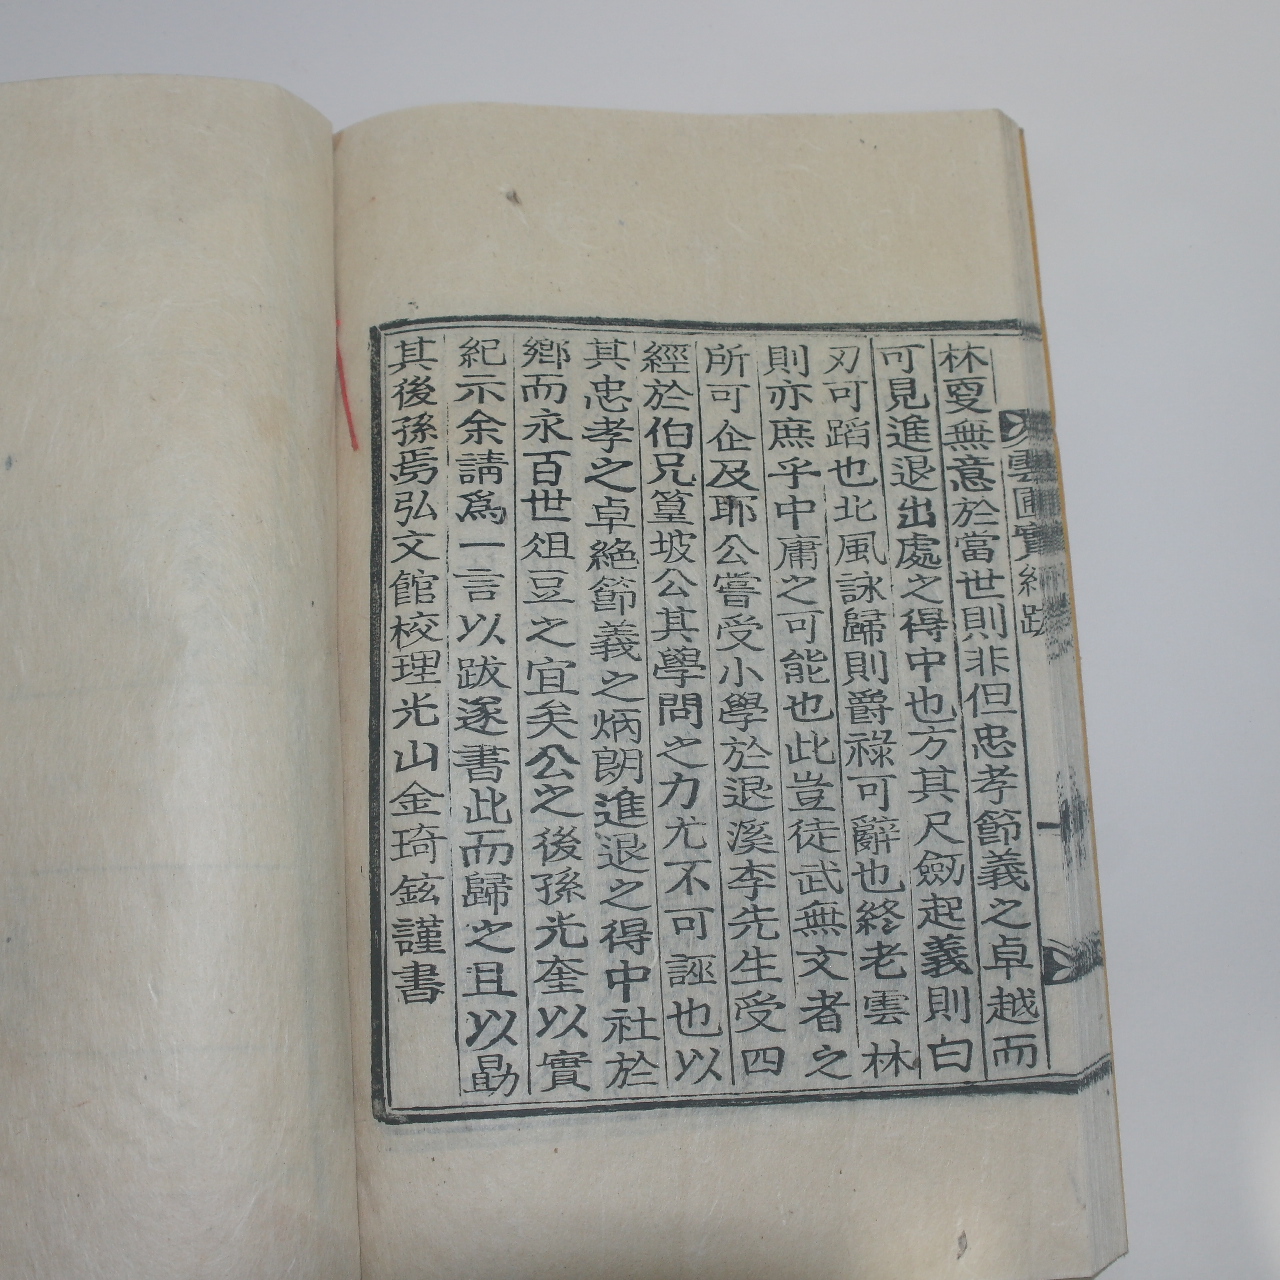 雲圃實紀跋
林更無意於當世則非但忠孝節義之卓越而
可見進退出處之得中也方其尺劒起義則白
刃可蹈也北風詠歸則爵祿可辭也終老雲林
則亦庶乎中庸之可能也此豈徒武無文者之
所可企及耶公嘗受小學於退溪李先生受四
經於伯兄篁坡公其學問之力尤不可誣也以
其忠孝之卓絶節義之炳朗進退之得中社於
鄉而永百世俎豆之宜矣公之後孫光奎以實
紀示余請爲一言以跋遂書此而歸之且以勖
其後孫焉弘文館校理光山金琦鉉謹書